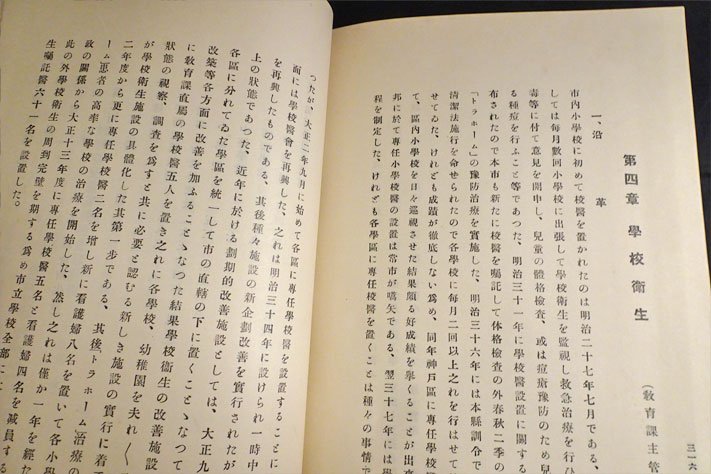 三一六
第四章 學校衞生
(敎育課主管
一、沿革
市内小學校に初めて校醫を置かれたのは明治二十七年七月である、
しては毎月數回小學校に出張して學校衞生を監視し救急治療を行ひ
毒等に付て意見を開申し、兒童の體格檢査、或は痘瘡豫防のため兒
る種痘を行ふこと等であつた、明治三十一年に學校醫設置に關する
布されたので本市も新たに校醫を囑託して体格檢査の外春秋二季の
「トラホーム」の豫防治療を實施した、明治三十六年には本縣訓令で
淸潔法施行を命せられたので各學校に毎月二回以上之れを行はせて
せてゐた、けれども成蹟が徹底しない爲め、同年神戸區に專任學校
て、區内小學校を日々巡視させた結果頗る好成蹟を擧くることが出
邦に於て專任小學校醫の設置は當市が嚆矢である、翌三十七年には
程を制定した、けれども各學區に專任校醫を置くことは種々の事情で
つたが、大正二年九月に始めて各區に專任學校醫を設置することに
面には學校醫會を再興した、之れは明治三十四年に設けられ一時中
を再興したものである、其後種々施設の新企劃改善を實行されたが
上の狀態であつた、近年に於ける劃期的改善施設としては、大正九
各區に分れてゐた學區を統一して市の直轄の下に置くことゝなつて
改築等各方面に改善を加ふることゝなつた結果學校衞生の改善施設
に敎育課直屬の學校醫五人を置き之れに各學校、幼稚園を夫れ〱
狀態の視察、調査を爲すと共に必要と認むる新しき施設の實行に着
が學校衞生施設の具體化した其第一步である、其後「トラホーム治療の
二年度から更に專任學校醫二名を增し新に看護婦八名を置いて各小學
ーム」患者の高率な學校の治療を開始した、然し之れは僅か一年を經た
政の關係から大正十三年度に專任學校醫五名と看護婦四名を減員する
此の外學校衞生の周到完璧を期する爲め市立學校全部に
生囑託醫六十一名を設置した。